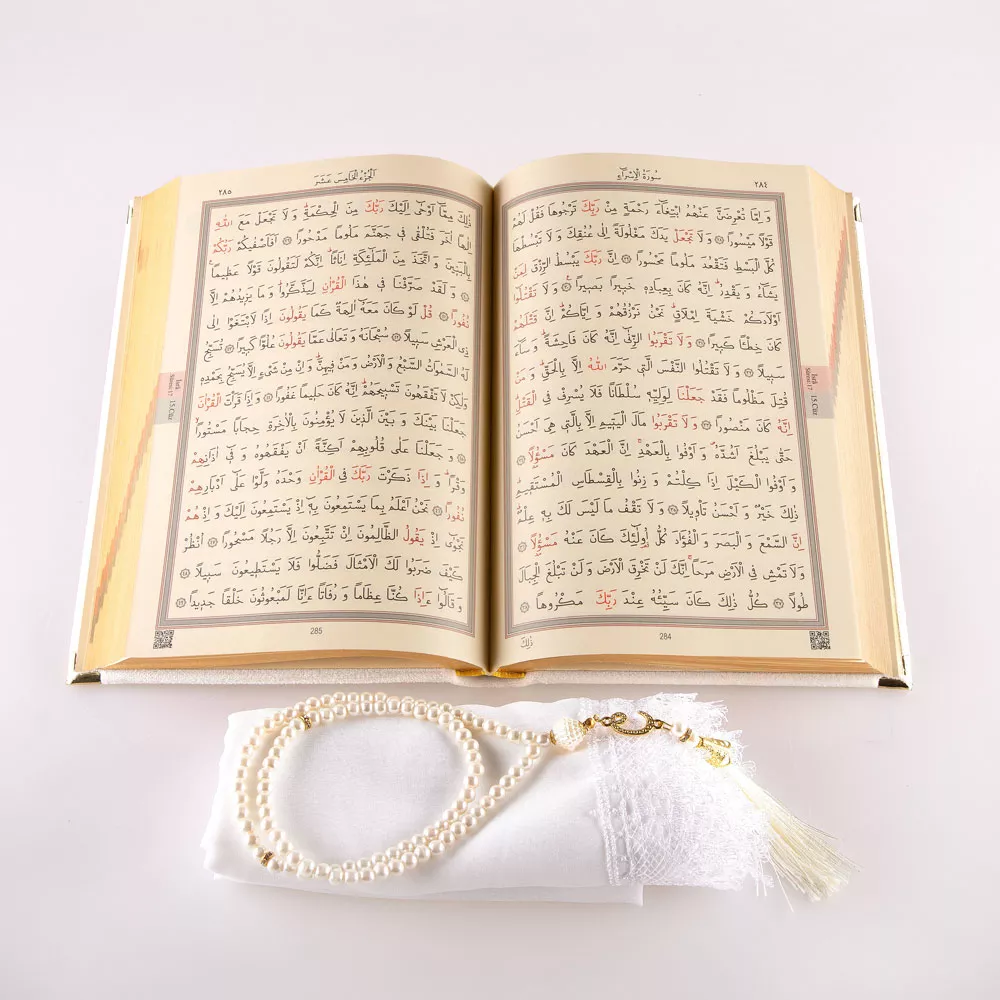 سُورَةُ الْاِسْرَاءِ ٢٨٤
وَ اِمَّا تُعْرِضَنَّ عَنْهُمُ ابْتِغَٓاءَ رَحْمَةٍ مِنْ رَبِّكَ تَرْجُوهَا فَقُلْ لَهُمْ
قَوْلًا مَيْسُورًا ﴿٢٨﴾ وَ لَا تَجْعَلْ يَدَكَ مَغْلُولَةً اِلٰى عُنُقِكَ وَ لَا تَبْسُطْهَا
كُلَّ الْبَسْطِ فَتَقْعُدَ مَلُومًا مَحْسُورًا ﴿٢٩﴾ اِنَّ رَبَّكَ يَبْسُطُ الرِّزْقَ لِمَنْ
يَشَٓاءُ وَ يَقْدِرُ اِنَّهُ كَانَ بِعِبَادِهِ خَبِيرًا بَصِيرًا ﴿٣٠﴾ وَ لَا تَقْتُلُٓوا
اَوْلَادَكُمْ خَشْيَةَ اِمْلَاقٍ نَحْنُ نَرْزُقُهُمْ وَ اِيَّاكُمْ اِنَّ قَتْلَهُمْ
كَانَ خِطْـًٔا كَبِيرًا ﴿٣١﴾ وَ لَا تَقْرَبُوا الزِّنٰٓى اِنَّهُ كَانَ فَاحِشَةً وَ سَٓاءَ
سَبِيلًا ﴿٣٢﴾ وَ لَا تَقْتُلُوا النَّفْسَ الَّتِي حَرَّمَ اللّٰهُ اِلَّا بِالْحَقِّ وَ مَنْ
قُتِلَ مَظْلُومًا فَقَدْ جَعَلْنَا لِوَلِيِّهِ سُلْطَانًا فَلَا يُسْرِفْ فِي الْقَتْلِ
اِنَّهُ كَانَ مَنْصُورًا ﴿٣٣﴾ وَ لَا تَقْرَبُوا مَالَ الْيَتِيمِ اِلَّا بِالَّتِي هِيَ اَحْسَنُ
حَتّٰى يَبْلُغَ اَشُدَّهُ وَ اَوْفُوا بِالْعَهْدِ اِنَّ الْعَهْدَ كَانَ مَسْؤُلًا ﴿٣٤﴾
وَ اَوْفُوا الْكَيْلَ اِذَا كِلْتُمْ وَ زِنُوا بِالْقِسْطَاسِ الْمُسْتَقِيمِ
ذٰلِكَ خَيْرٌ وَ اَحْسَنُ تَأْوِيلًا ﴿٣٥﴾ وَ لَا تَقْفُ مَا لَيْسَ لَكَ بِهِ عِلْمٌ
اِنَّ السَّمْعَ وَ الْبَصَرَ وَ الْفُؤَادَ كُلُّ اُولٰٓئِكَ كَانَ عَنْهُ مَسْؤُلًا ﴿٣٦﴾
وَ لَا تَمْشِ فِي الْاَرْضِ مَرَحًا اِنَّكَ لَنْ تَخْرِقَ الْاَرْضَ وَ لَنْ تَبْلُغَ الْجِبَالَ
طُولًا ﴿٣٧﴾ كُلُّ ذٰلِكَ كَانَ سَيِّئُهُ عِنْدَ رَبِّكَ مَكْرُوهًا ﴿٣٨﴾
ذٰلِكَ
284
İsrâ
Sûresi: 17
15.Cüz
٢٨٥ اَلْجُزْءُ الْخَامِسَ عَشَرَ
ذٰلِكَ مِمَّٓا اَوْحٰٓى اِلَيْكَ رَبُّكَ مِنَ الْحِكْمَةِ وَ لَا تَجْعَلْ مَعَ اللّٰهِ
اِلٰهًا اٰخَرَ فَتُلْقٰى فِي جَهَنَّمَ مَلُومًا مَدْحُورًا ﴿٣٩﴾ اَفَاَصْفٰيكُمْ رَبُّكُمْ
بِالْبَنِينَ وَ اتَّخَذَ مِنَ الْمَلٰٓئِكَةِ اِنَاثًا اِنَّكُمْ لَتَقُولُونَ قَوْلًا عَظِيمًا
﴿٤٠﴾ وَ لَقَدْ صَرَّفْنَا فِي هٰذَا الْقُرْاٰنِ لِيَذَّكَّرُوا وَ مَا يَزِيدُهُمْ اِلَّا
نُفُورًا ﴿٤١﴾ قُلْ لَوْ كَانَ مَعَهُٓ اٰلِهَةٌ كَمَا يَقُولُونَ اِذًا لَابْتَغَوْا اِلٰى
ذِي الْعَرْشِ سَبِيلًا ﴿٤٢﴾ سُبْحَانَهُ وَ تَعَالٰى عَمَّا يَقُولُونَ عُلُوًّا كَبِيرًا ﴿٤٣﴾ تُسَبِّحُ
لَهُ السَّمٰوَاتُ السَّبْعُ وَ الْاَرْضُ وَ مَنْ فِيهِنَّ وَ اِنْ مِنْ شَيْءٍ اِلَّا يُسَبِّحُ بِحَمْدِهِ
وَلٰكِنْ لَا تَفْقَهُونَ تَسْبِيحَهُمْ اِنَّهُ كَانَ حَلِيمًا غَفُورًا ﴿٤٤﴾ وَ اِذَا قَرَأْتَ الْقُرْاٰنَ
جَعَلْنَا بَيْنَكَ وَ بَيْنَ الَّذِينَ لَا يُؤْمِنُونَ بِالْاٰخِرَةِ حِجَابًا مَسْتُورًا
﴿٤٥﴾ وَ جَعَلْنَا عَلٰى قُلُوبِهِمْ اَكِنَّةً اَنْ يَفْقَهُوهُ وَ فِٓي اٰذَانِهِمْ
وَقْرًا وَ اِذَا ذَكَرْتَ رَبَّكَ فِي الْقُرْاٰنِ وَحْدَهُ وَلَّوْا عَلٰٓى اَدْبَارِهِمْ
نُفُورًا ﴿٤٦﴾ نَحْنُ اَعْلَمُ بِمَا يَسْتَمِعُونَ بِهِٓ اِذْ يَسْتَمِعُونَ اِلَيْكَ وَ اِذْ هُمْ
نَجْوٰٓى اِذْ يَقُولُ الظَّالِمُونَ اِنْ تَتَّبِعُونَ اِلَّا رَجُلًا مَسْحُورًا ﴿٤٧﴾ اُنْظُرْ
كَيْفَ ضَرَبُوا لَكَ الْاَمْثَالَ فَضَلُّوا فَلَا يَسْتَطِيعُونَ سَبِيلًا ﴿٤٨﴾
وَ قَالُٓوا ءَاِذَا كُنَّا عِظَامًا وَ رُفَاتًا ءَاِنَّا لَمَبْعُوثُونَ خَلْقًا جَدِيدًا ﴿٤٩﴾
285
İsrâ
Sûresi: 17
15.Cüz